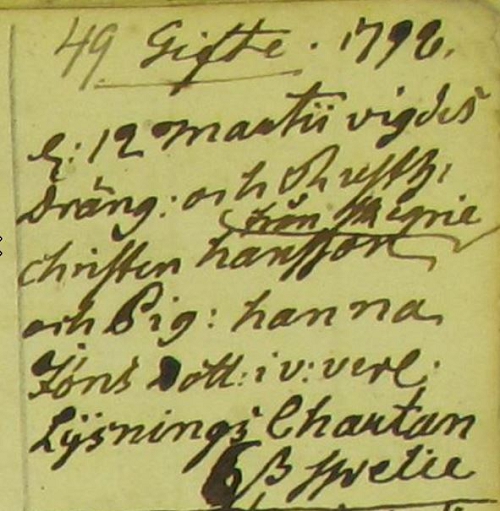 49 Gifte. 1792.
d: 12 Martii vigdes
Dräng: och
från
Christen hansson
och Pig: hanna
Jöns Dott: i v: verl:
Lysnings Chartan
6 ß